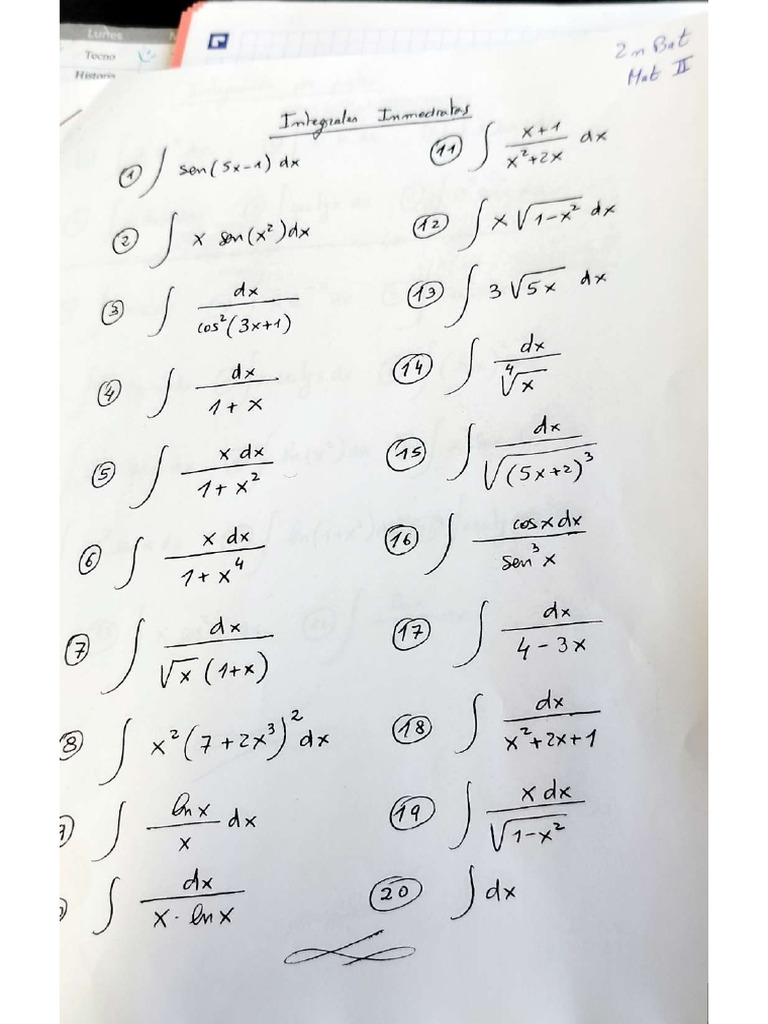 Lunes
Tecno
Historia
2n Bat
Mat II
Integrales Inmediatas
① ∫ sen(5x-1) dx
② ∫ x sen(x²)dx
③ ∫ dx / cos²(3x+1)
④ ∫ dx / 1+x
⑤ ∫ x dx / 1+x²
⑥ ∫ x dx / 1+x⁴
⑦ ∫ dx / √x (1+x)
8 ∫ x²(7+2x³)² dx
∫ ln x / x dx
∫ dx / x · ln x
⑪ ∫ x+1 / x²+2x dx
⑫ ∫ x √(1-x²) dx
⑬ ∫ 3 √(5x) dx
⑭ ∫ dx / ⁴√x
⑮ ∫ dx / √((5x+2)³)
⑯ ∫ cos x dx / sen³ x
⑰ ∫ dx / 4-3x
⑱ ∫ dx / x²+2x+1
⑲ ∫ x dx / √(1-x²)
⑳ ∫ dx